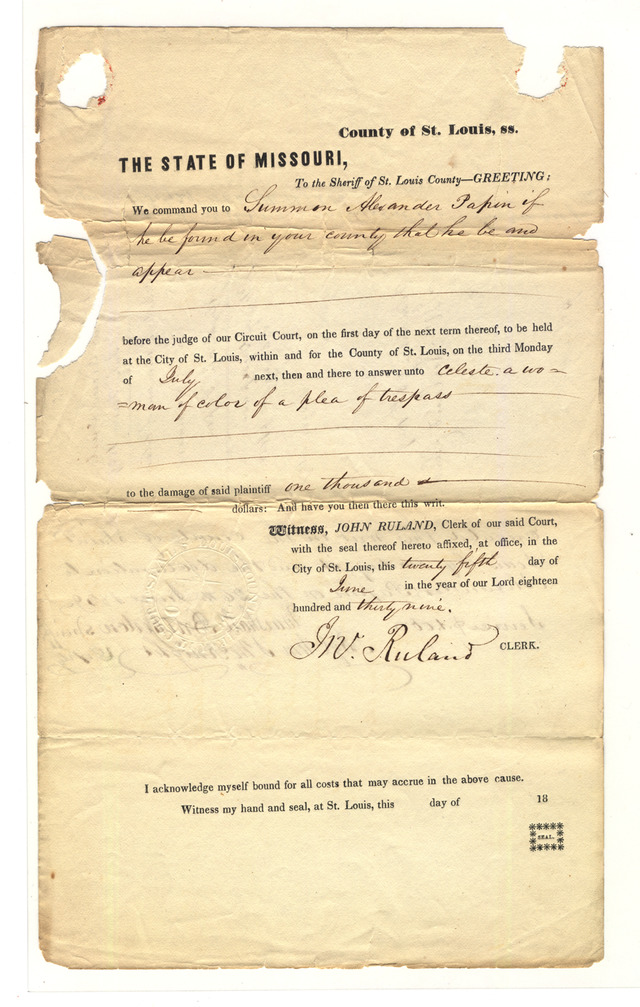 County of St. Louis, ss.
THE STATE OF MISSOURI,
To the Sheriff of St. Louis County—GREETING:
We command you to Summon Alexander Papin if
he be found in your county that he be and
appear
before the judge of our Circuit Court, on the first day of the next term thereof, to be held
at the City of St. Louis, within and for the County of St. Louis, on the third Monday
of July next, then and there to answer unto Celeste. a wo=
=man of color of a plea of trespass
to the damage of said plaintiff one thousand
dollars: And have you then there this writ.
Witness, JOHN RULAND, Clerk of our said Court,
with the seal thereof hereto affixed, at office, in the
City of St. Louis, this twenty fifth day of
June in the year of our Lord eighteen
hundred and thirty nine.
Jno. Ruland CLERK.
I acknowledge myself bound for all costs that may accrue in the above cause.
Witness my hand and seal, at St. Louis, this day of 18
SEAL.